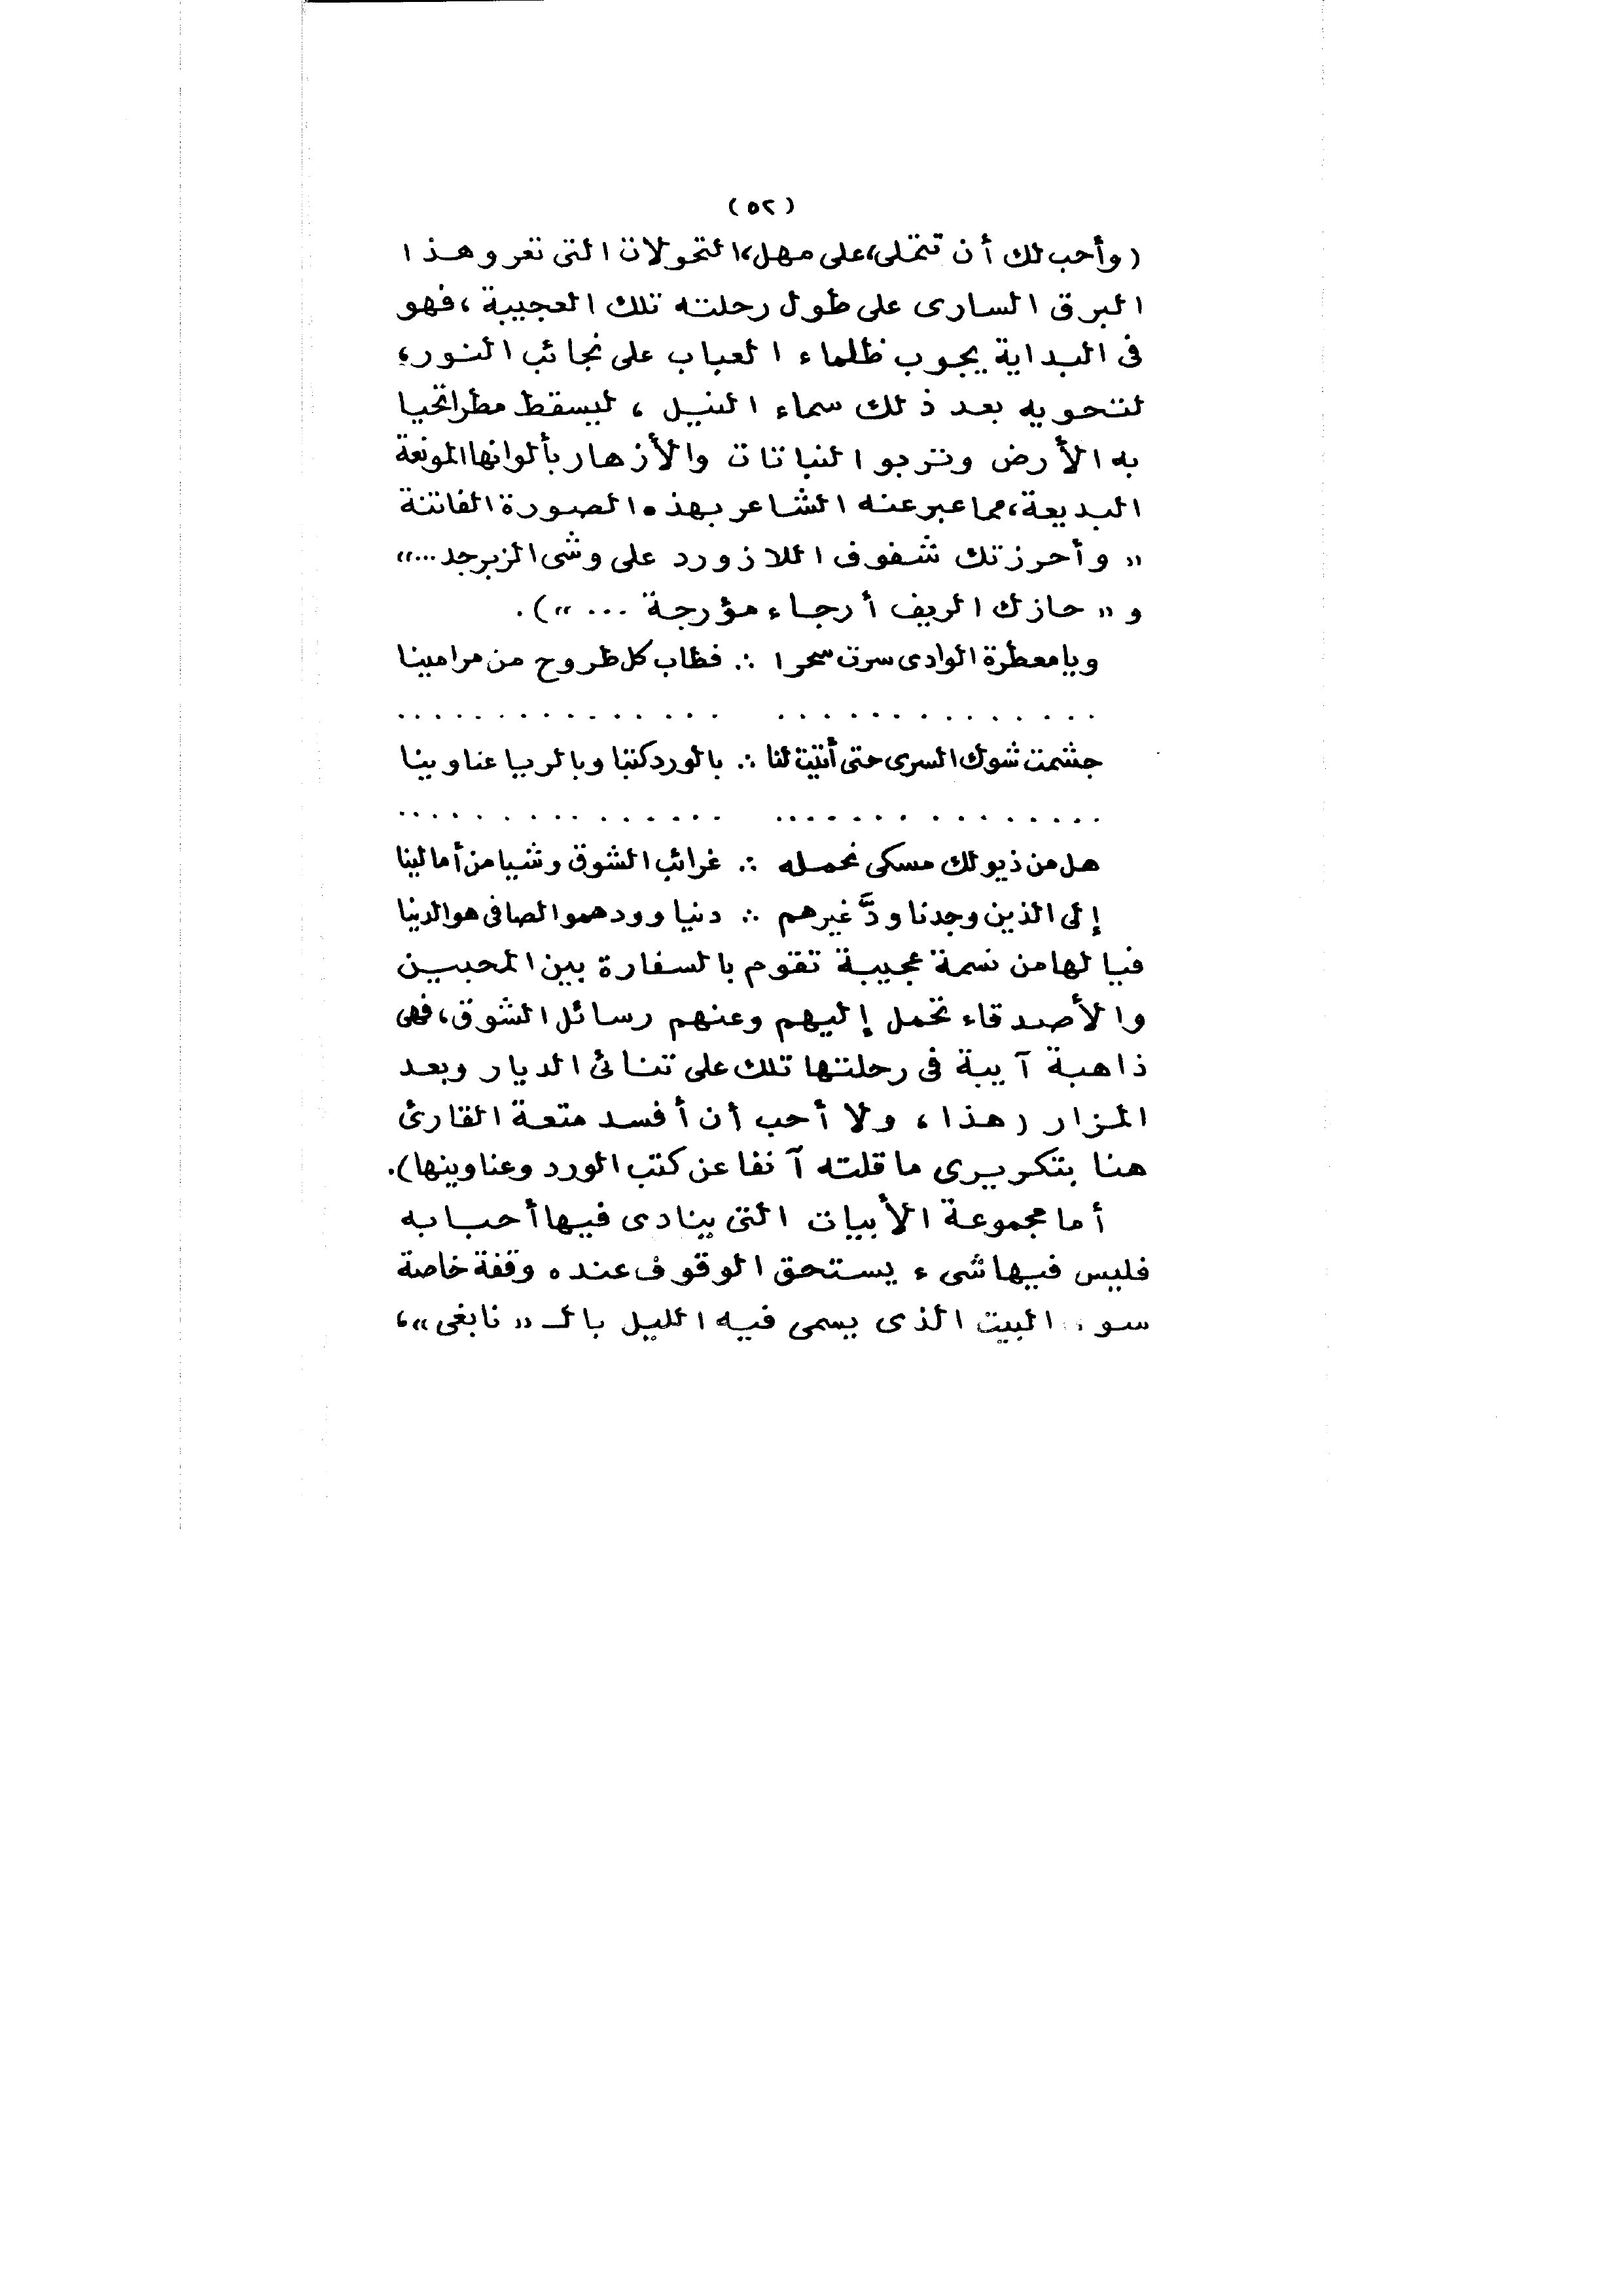 (٥٢)
(وأحب لك أن تتملى، على مهل، التحولات التى تعرو هذا
البرق السارى على طول رحلته تلك العجيبة، فهو
فى البداية يجوب ظلماء العباب على نجائب النور،
لتحويه بعد ذلك سماء النيل، ليسقط مطرا تحيا
به الأرض وتربو النباتات والأزهار بألوانها المونعة
البديعة، مما عبر عنه الشاعر بهذه الصورة الفاتنة
« وأحرزتك شفوف اللازورد على وشى الزبرجد...»
و « حازك الريف أرجاء مؤرجة ... »).
ويا معطرة الوادى سرت سحرا ∴ فطاب كل طروح من مرامينا
. . . . . . . . . . . . . . . . . . . . . . . . . . .
جشمت شوك السرى حتى أتيت لنا ∴ بالورد كتبا وبالريا عناوينا
. . . . . . . . . . . . . . . . . . . . . . . . . . .
هل من ذيولك مسكى نحمله ∴ غرائب الشوق وشيا من أمالينا
إلى الذين وجدنا ودَّ غيرهم ∴ دنيا وودهمو الصافى هو الدينا
فيا لها من نسمة عجيبة تقوم بالسفارة بين المحبين
والأصدقاء تحمل إليهم وعنهم رسائل الشوق، فهى
ذاهبة آيبة فى رحلتها تلك على تنائى الديار وبعد
المزار (هذا، ولا أحب أن أفسد متعة القارئ
هنا بتكريرى ما قلته آنفا عن كتب الورد وعناوينها).
أما مجموعة الأبيات التى ينادى فيها أحبابه
فليس فيها شىء يستحق الوقوف عنده وقفة خاصة
سو البيت الذى يسمى فيه الليل بالـ « نابغى »،